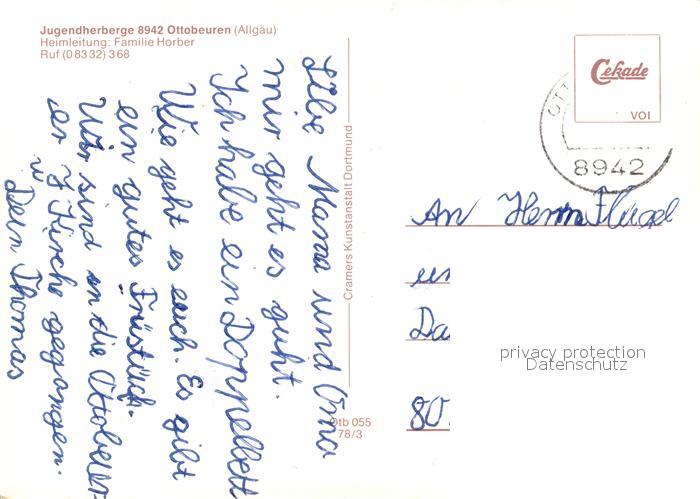 Jugendherberge 8942 Ottobeuren (Allgäu)
Heimleitung: Familie Horber
Ruf (08332) 368
Libe Mama und Oma
mir geht es guht.
Ich habe ein Doppelbett
Wie geht es euch. Es gibt
ein gutes Früstück.
Wir sind in die Ottobeur
er Kirche gegangen.
Dein Thomas
Cramers Kunstanstalt Dortmund
Otb 055
78/3
Cekade
VOI
OTT
8942
An Herrn Flügel
un
Da
80
privacy protection
Datenschutz